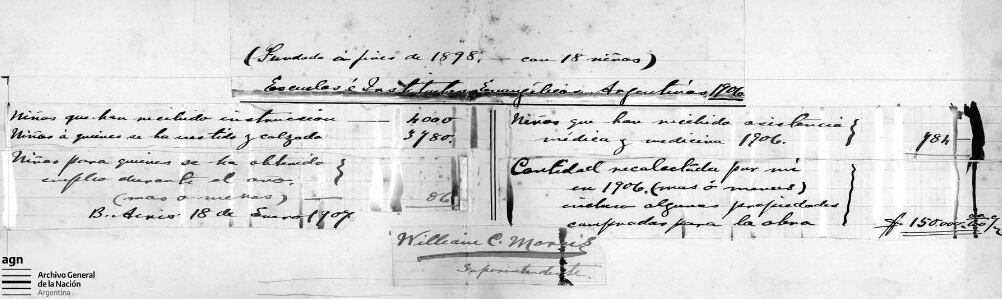 (Fundada á fines de 1898. – con 18 niños)
Escuelas é Institutos Evangélicos Argentinos 1906
Niños que han recibido instrucción — 4000
Niños á quienes se ha vestido y calzado 3780.
Niños para quienes se ha obtenido
empleo durante el año.
(mas ó menos) — 86
B. Aires 18 de Enero 1907
Niños que han recibido asistencia
médica y medicina 1906. 784
Cantidad recolectada por mi
en 1906. (mas ó menos)
incluso algunas propiedades
compradas para la obra $ 150.000
William C. Morris
Superintendente.
agn
Archivo General
de la Nación
Argentina